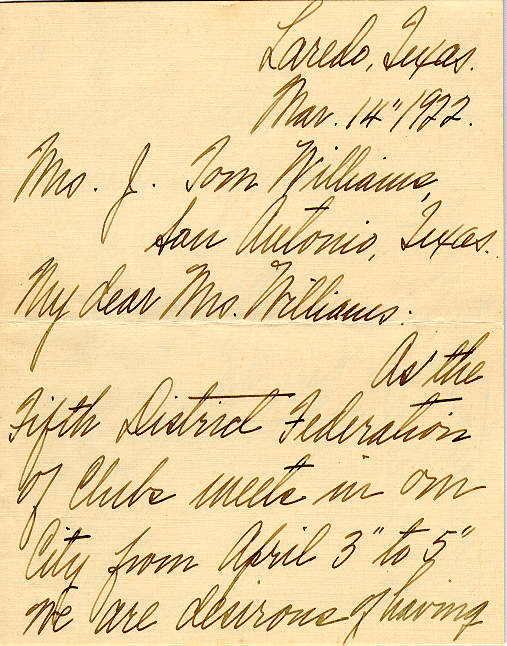 Laredo, Texas.
Mar. 14" 1922.
Mrs. J. Tom Williams,
San Antonio, Texas.
My dear Mrs. Williams:
As the
Fifth District Federation
of Clubs meets in our
City from April 3" to 5"
We are desirous of having